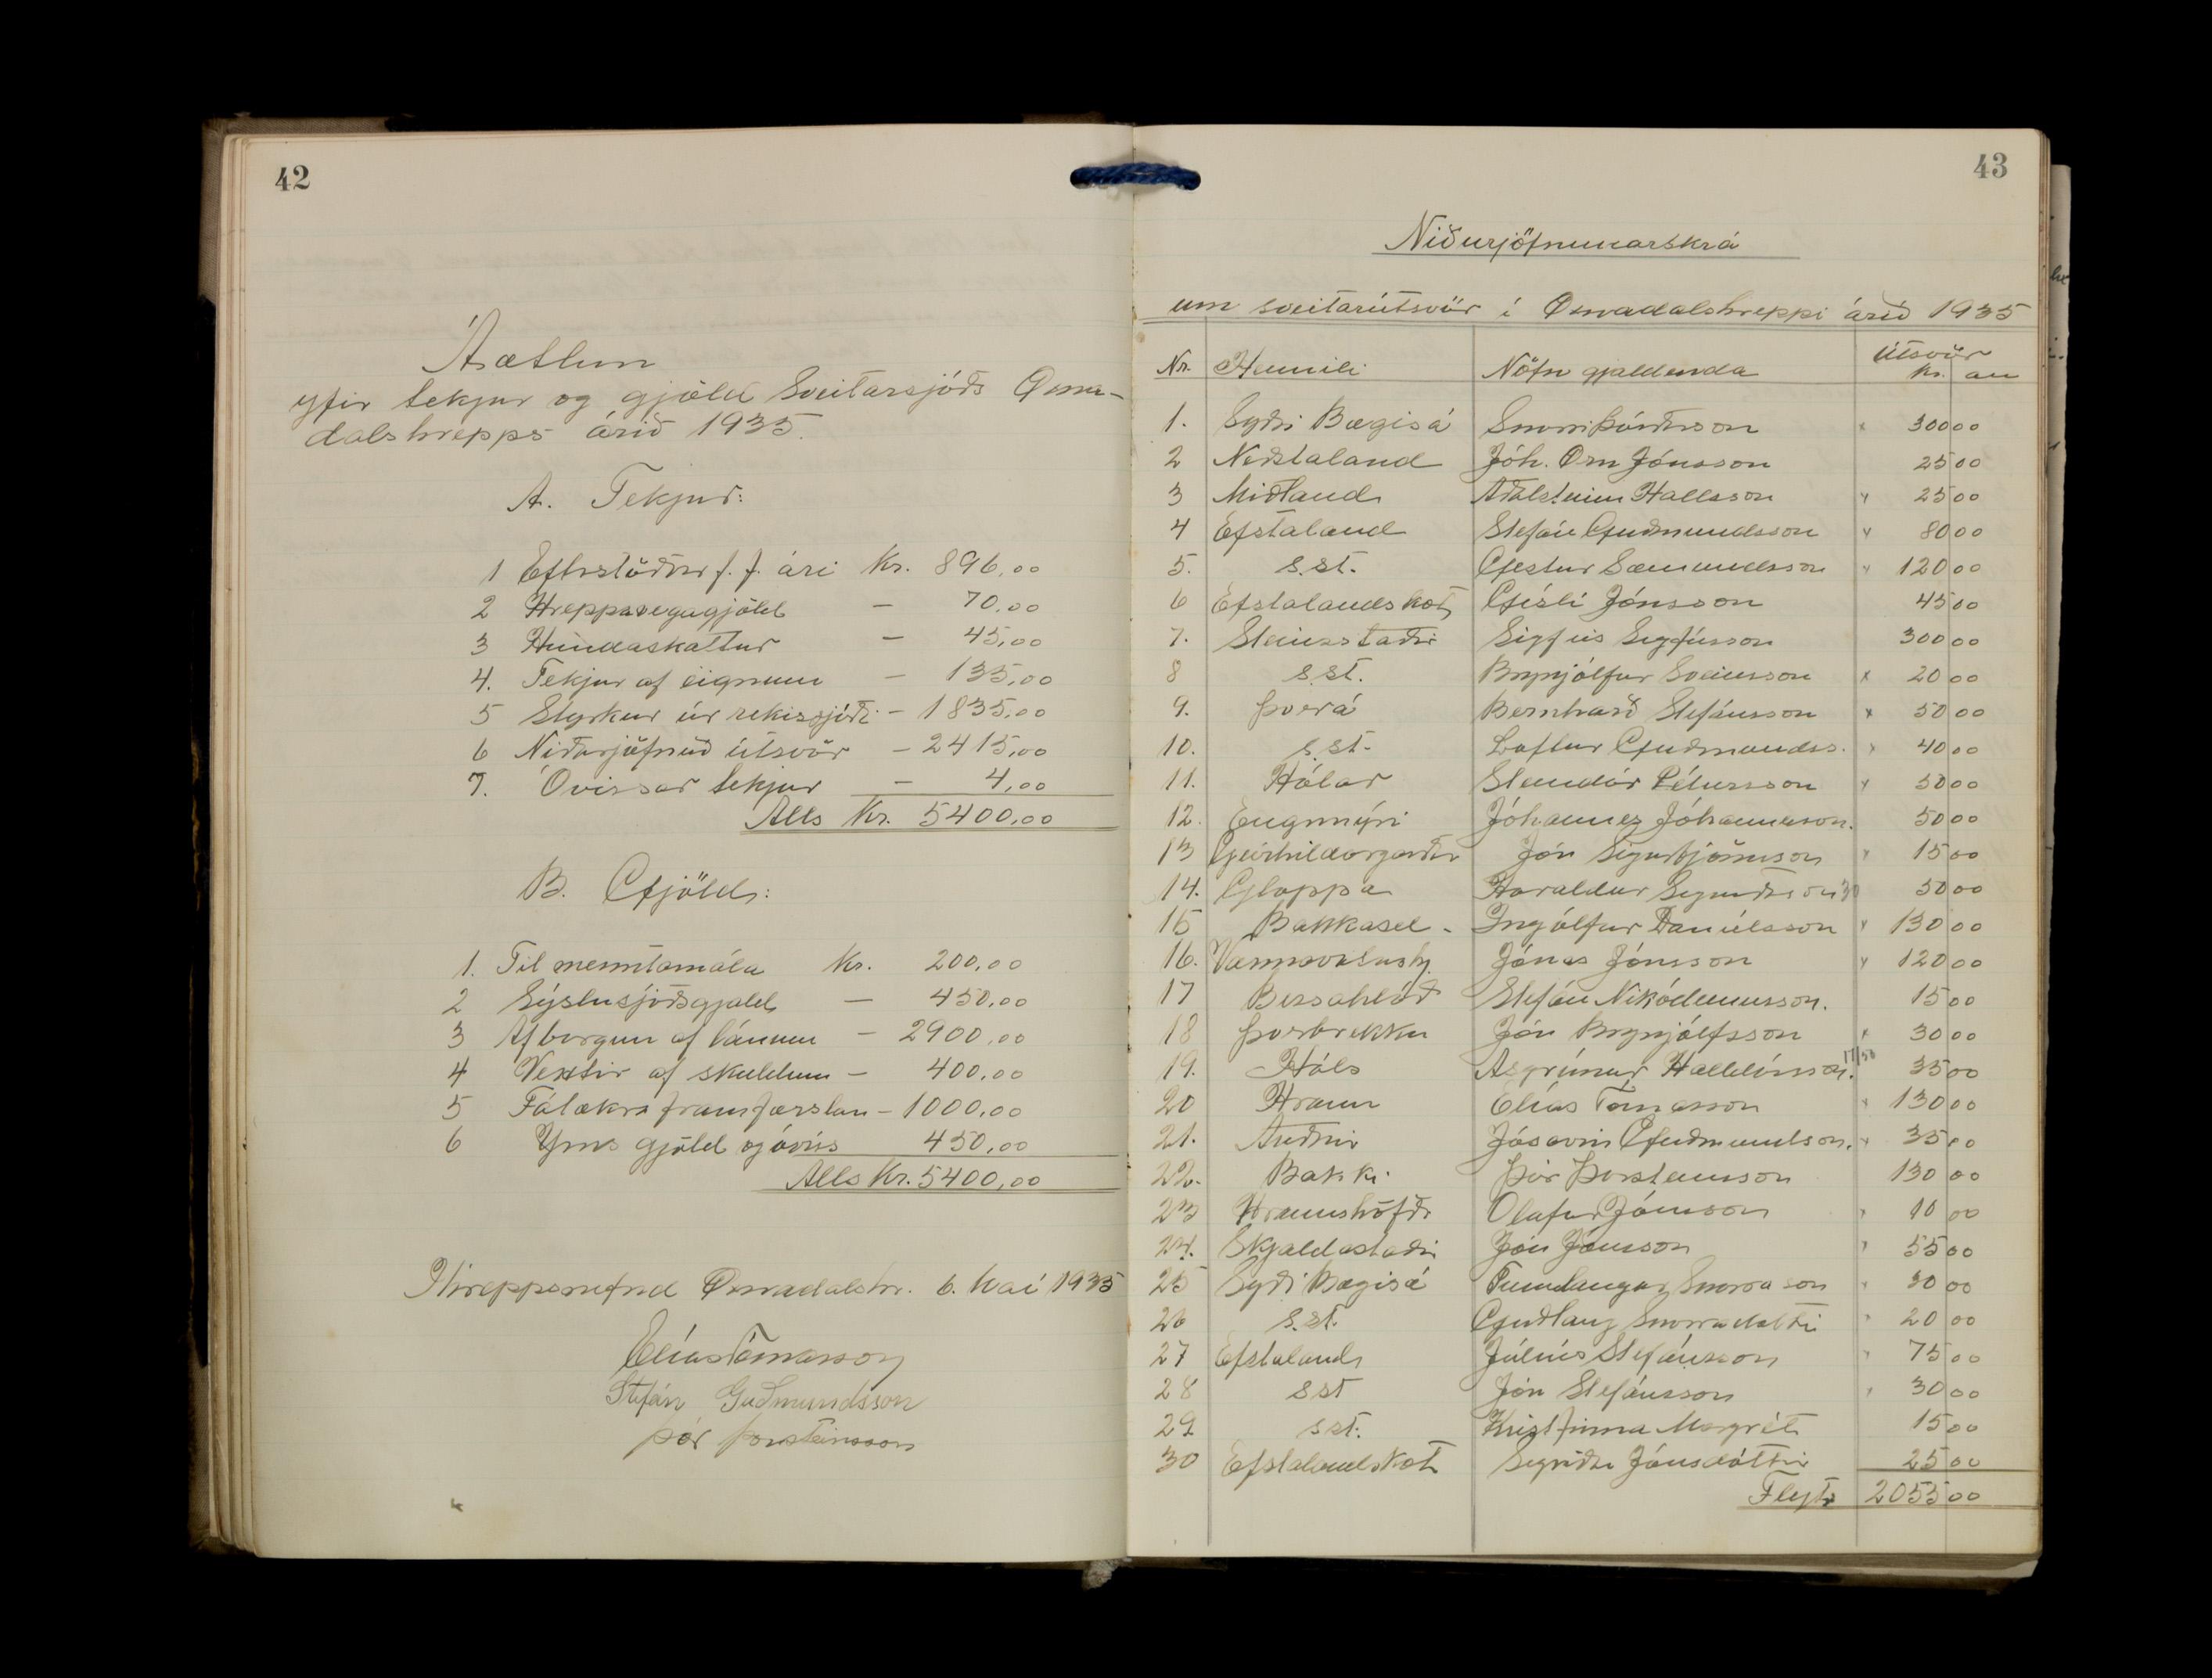 42
Áætlun
yfir tekjur og gjöld Sveitarsjóðs Öxna-
dalshrepps árið 1935.
A. Tekjur:
1 Eftirstöðvar f. f. ári Kr. 896,00
2 Hreppavegagjöld — 70,00
3 Hundaskattur — 45,00
4. Tekjur af eignum — 135,00
5 Styrkur úr rekissjóði — 1835,00
6 Niðurjöfnuð útsvör — 2415,00
7. Óvissar tekjur — 4,00
Alls Kr. 5400,00
B. Gjöld:
1. Til menntamála Kr. 200,00
2 Sýslusjóðsgjald — 450,00
3 Afborgun af lánum — 2900,00
4 Vextir af skuldum — 400,00
5 Fátækra framfærslan — 1000,00
6 Yms gjöld og óviss 450,00
Alls Kr. 5400,00
Hreppsnefnd Öxnadalshr. 6. Maí 1935
Elías Tómasson
Stefán Guðmundsson
Þór Þorsteinsson
43
Niðurjöfnunarskrá
um sveitarútsvör í Öxnadalshreppi árið 1935
Nr. Heimili Nöfn gjaldenda Útsvör
kr. au
1. Syðri Bægisá Snorri Þórðarson 300 00
2 Neðstaland Jóh. Örn Jónsson 25 00
3 Miðland Aðalsteinn Hallsson 25 00
4 Efstaland Stefán Guðmundsson 80 00
5. s.st. Gestur Sæmundsson 120 00
6 Efstalandskot Gísli Jónsson 45 00
7. Steinsstaðir Sigfús Sigfússon 300 00
8 s.st. Brynjólfur Sveinsson 20 00
9. Þverá Bernharð Stefánsson 50 00
10. s.st. Loftur Guðmundss. 40 00
11. Hólar Steindór Pétursson 50 00
12. Engimýri Jóhannes Jóhannesson. 50 00
13 Geirhildargarðar Jón Sigurbjörnsson 15 00
14. Gloppa Haraldur Sigurðsson 30 50 00
15 Bakkasel - Ingólfur Daníelsson 130 00
16. Jónas Jónsson 120 00
17 Bessahlöð Stefán Nikódemusson. 15 00
18 Þverbrekku Jón Brynjólfsson 30 00
19. Háls Asgrímur Halldórsson. 35 00
20 Hraun Elías Tómasson 130 00
21. Auðnir Jósavin Guðmundson. 35 00
22. Bakki Þór Þorsteinsson 130 00
23 Hraunshöfði Olafur Jónsson 10 00
24. Skjaldastaðir Jón Jónsson 55 00
25 Syðri Bægisá Finnlaugur Snorrason 30 00
26 s.st. Guðlaug Snorradottir 20 00
27 Efstaland Júlíus Stefánsson 75 00
28 s st Jón Stefánsson 30 00
29 s.st. Kristfinna Margrét 15 00
30 Efstalandskot Sigríður Jónsdóttir 25 00
Flytr 2055 00